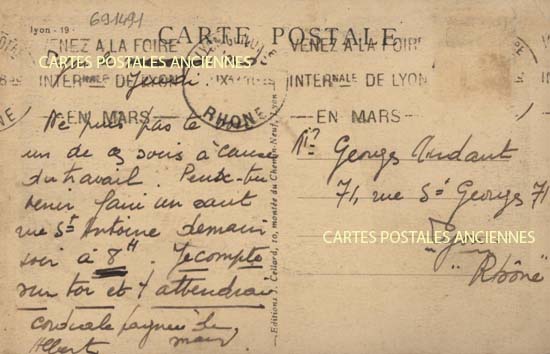 691491
lyon - 19 -
CARTE POSTALE
VENEZ A LA FOIRE
INTERNALE DE LYON
— EN MARS —
RHONE
VENEZ A LA FOIRE
INTERNALE DE LYON
— EN MARS —
CARTES POSTALES ANCIENNES
Jeudi.
Ne puis pas te
un de ces soirs à cause
du travail. Peux-tu
venir faire un saut
rue St Antoine demain
soir à 8H. Je compte
sur toi et t'attendrai
cordiale poignée de
main
Albert
Editions J. Cellard, 10, montée du Chemin-Neuf, Lyon
Georges
71, rue St Georges 71
Lyon
"Rhône"
CARTES POSTALES ANCIENNES